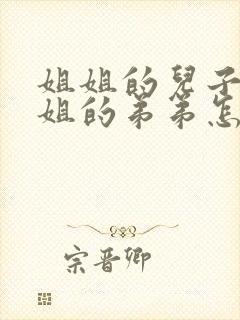 姐姐的兒子
姐的弟弟怎
宗晋卿